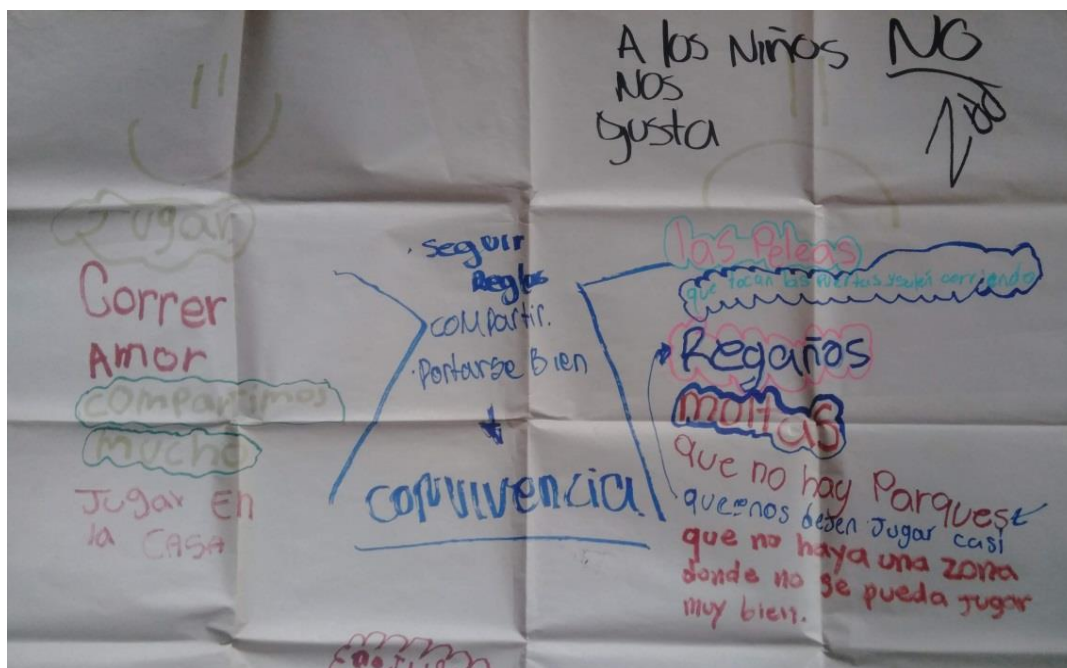 A los Niños NO
Nos
gusta
Jugar
Correr
Amor
compartimos
mucho
Jugar En
la CASA
· seguir
Reglas
compartir.
· Portarse Bien
convivencia
las Peleas
que tocan las puertas y salen corriendo
Regaños
moltas
que no hay Parques
que nos dejen Jugar casi
que no haya una zona
donde no se pueda Jugar
muy bien.